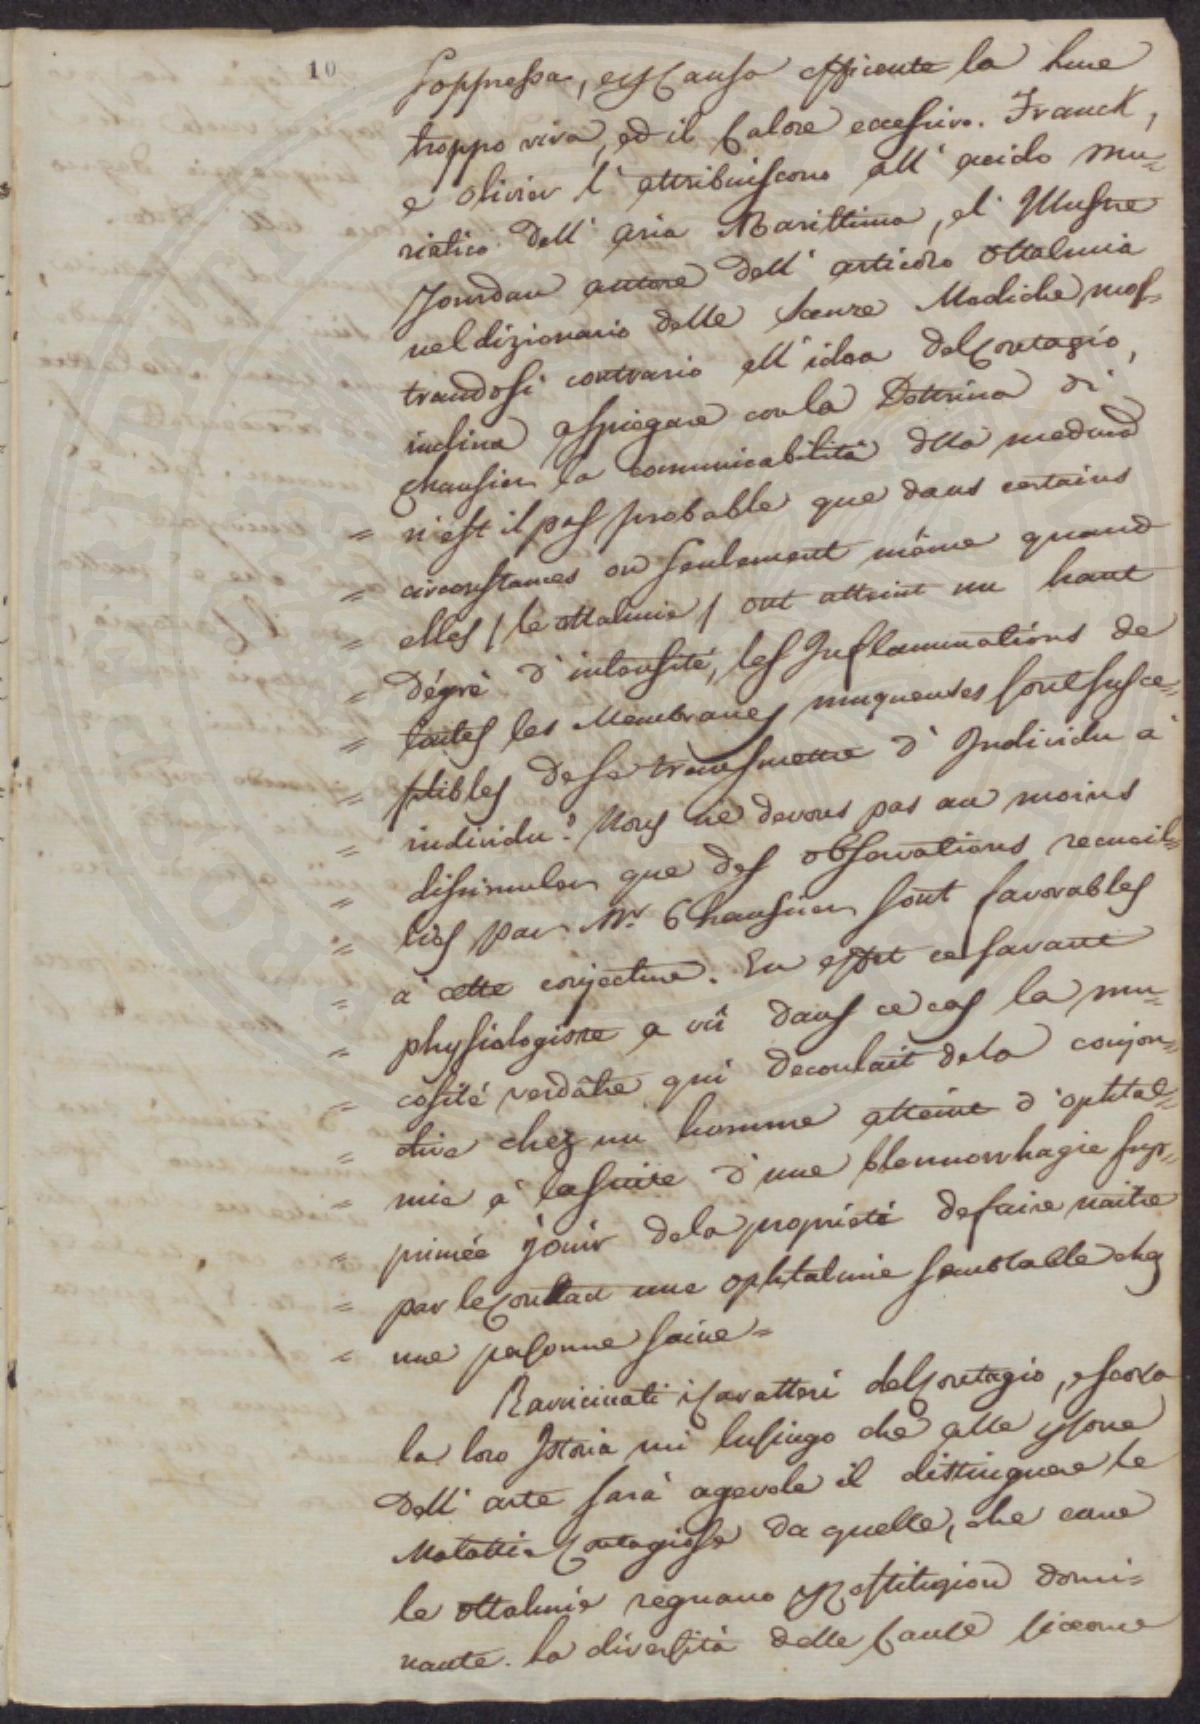 10
soppressa, e p causa efficente la luce
troppo viva, ed il Calore eccessivo. Franck,
e Olivier l' attribuiscono all' acido mu=
riatico dell' aria Marittima, el' Illustre
Jourdan autore dell' articolo ottalmia
nel dizionario delle Scenze Mediche mos=
trandosi contrario all' idea del Contagio,
inclina a spiegare con la Dottrina di
Chaussier la comunicabilità della medma
= n'est il pas probable que dans certains
= circonstances ou seulement même quand
= elles / le ottalmie / ont atteint un haut
= dégré d' intensité, les Inflammations de
= toutes les Membranes muqueuses sont susce=
= ptibles de se transmettre d' Individu a
= individu? Nous ne devons pas au moins
= dissimuler que des observations recueil=
= lies par Mr. Chaussier sont favorables
= a cette conjecture. En effet ce savant
= physiologiste a vû dans ce cas la mu=
= cosité verdâtre qui decoulait de la conjon=
= ctive chez un homme atteint d'ophtal=
= mie a la suite d' une blennorrhagie sup=
= primée jouir de la proprieté de faire naitre
= par le Contact une ophtalmie semblable chez
= une personne saine =
Ravvicinati i Caratteri del Contagio, e scorsa
la loro Istoria mi lusingo che alle psone
dell' arte sarà agevole il distinguere le
Malattie Contagiose da quelle, che come
le ottalmie regnano p Costituzion domi=
nante. la diversità delle Cause siccome